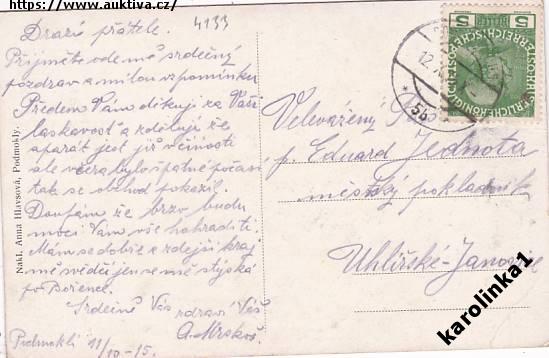 https://www.auktiva.cz/
4133
Drazí přátele.
Přijměte ode mě srdečný
pozdrav a milou vzpomínku
Předem Vám děkuji za Vaši
laskavost a sděluji že
aparát jest již v činnosti
ale včera bylo špatné počasí
tak se obchod pokazil.
Doufám že brzo budu
moci Vám vše nahraditi.
Mám se dobře a zdejší kraj
mě svědčí jen se mě stýská
po Bořence.
Srdečně Vás zdraví Váš
A. Mrskoš.
Podmokli 11/10-15.
Nakl. Anna Hlavsová, Podmokly.
5 5
12.
Velevážený Pán
p. Eduard Jednota
městský pokladník
Uhlířské-Janovice
karolinka1